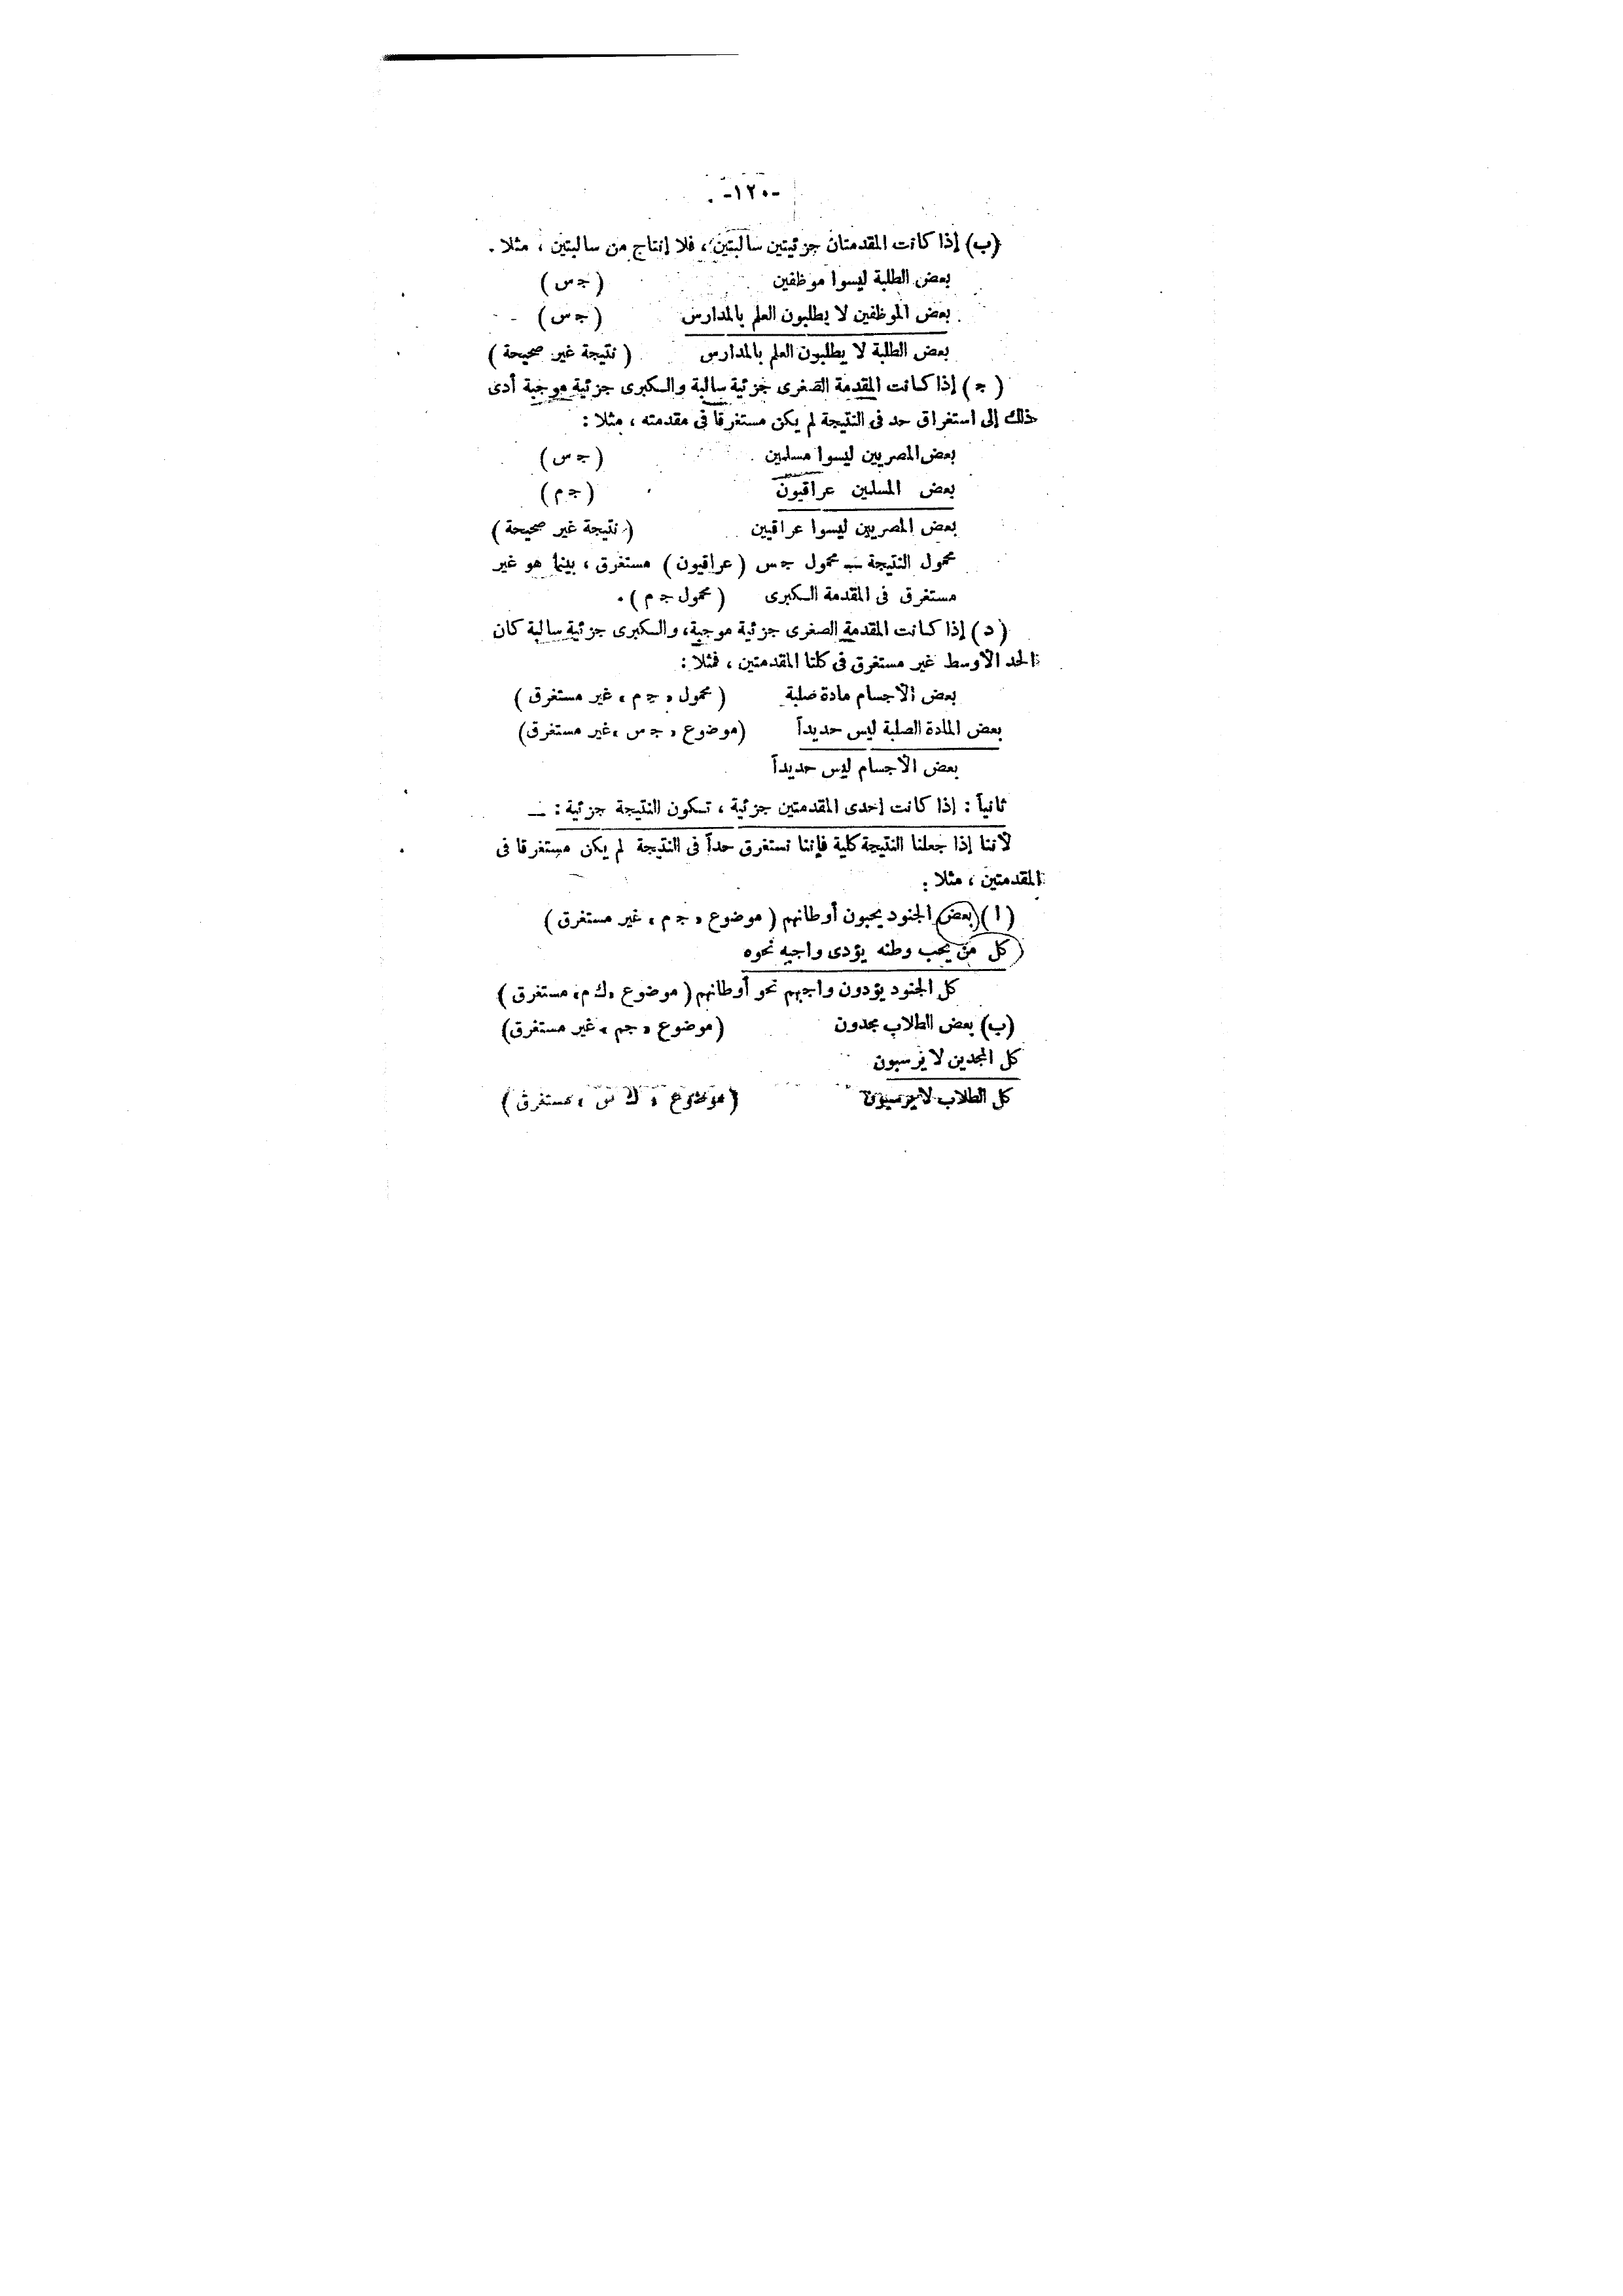 -١٢٠-
(ب) إذا كانت المقدمتان جزئيتين سالبتين، فلا إنتاج من سالبتين ، مثلا .
بعض الطلبة ليسوا موظفين (جـ س)
بعض الموظفين لا يطلبون العلم بالمدارس (جـ س)
بعض الطلبة لا يطلبون العلم بالمدارس (نتيجة غير صحيحة)
(جـ) إذا كانت المقدمة الصغرى جزئية سالبة والكبرى جزئية موجبة أدى
ذلك إلى استغراق حد فى النتيجة لم يكن مستغرقا فى مقدمته ، مثلا :
بعض المصريين ليسوا مسلمين (جـ س)
بعض المسلمين عراقيون (جـ م)
بعض المصريين ليسوا عراقيين (نتيجة غير صحيحة)
محمول النتيجة ــ محمول جـ س (عراقيون) مستغرق ، بينما هو غير
مستغرق فى المقدمة الكبرى (محمول جـ م) .
(د) إذا كانت المقدمة الصغرى جزئية موجبة، والكبرى جزئية سالبة كان
الحد الأوسط غير مستغرق فى كلتا المقدمتين ، فمثلا :
بعض الأجسام مادة صلبة (محمول « جـ م » غير مستغرق)
بعض المادة الصلبة ليس حديداً (موضوع « جـ س » غير مستغرق)
بعض الأجسام ليس حديداً
ثانياً : إذا كانت إحدى المقدمتين جزئية ، تكون النتيجة جزئية : ــ
لأننا إذا جعلنا النتيجة كلية فإننا نستغرق حداً فى النتيجة لم يكن مستغرقا فى
المقدمتين ، مثلا :
(ا) بعض الجنود يحبون أوطانهم (موضوع « جـ م » غير مستغرق)
كل من يحب وطنه يؤدى واجبه نحوه
كل الجنود يؤدون واجبهم نحو أوطانهم (موضوع « ك م » مستغرق)
(ب) بعض الطلاب مجدون (موضوع « جم » غير مستغرق)
كل المجدين لا يرسبون
كل الطلاب لا يرسبون (موضوع « ك س » مستغرق)